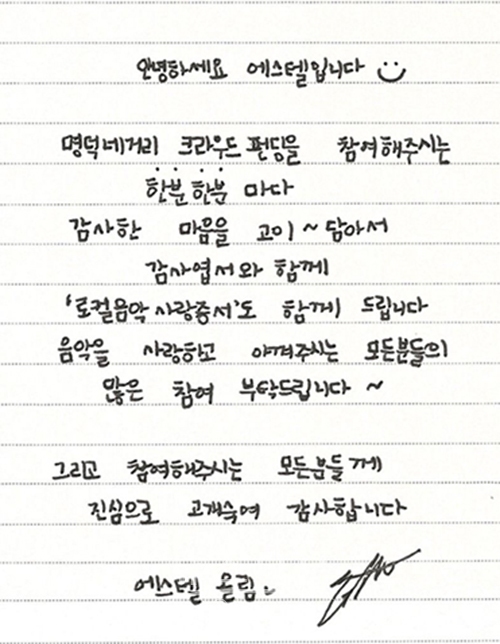 안녕하세요 에스텔입니다
명덕네거리 크라우드 펀딩을 참여해주시는
한분 한분 마다
감사한 마음을 고이~ 담아서
감사엽서와 함께
'로컬음악 사랑증서'도 함께 드립니다
음악을 사랑하고 아껴주시는 모든분들의
많은 참여 부탁드립니다~
그리고 참여해주시는 모든분들께
진심으로 고개숙여 감사합니다
에스텔 올림.